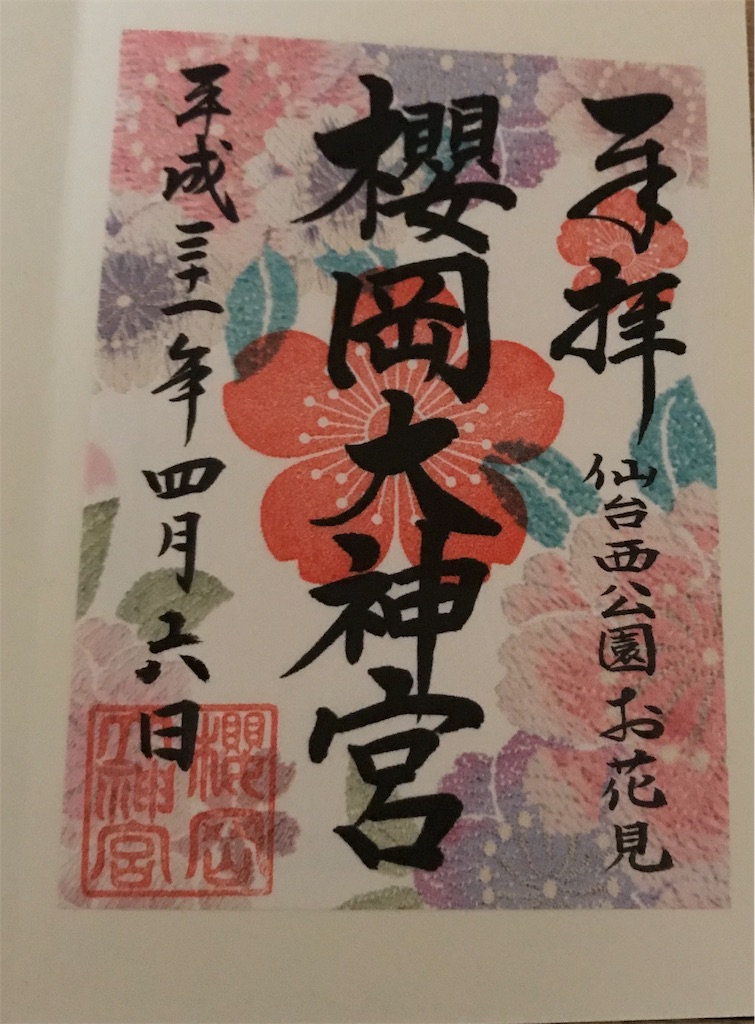 奉拝
仙台西公園お花見
櫻岡大神宮
平成三十一年四月六日
櫻岡
大神宮